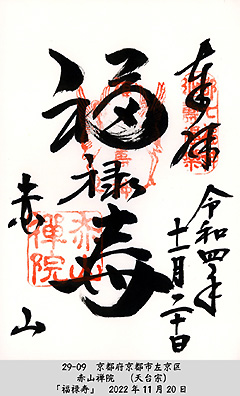 奉拝
令和四年
十一月二十日
福禄寿
赤山
赤山禅院
29-09 京都府京都市左京区
赤山禅院 (天台宗)
「福禄寿」 2022年11月20日